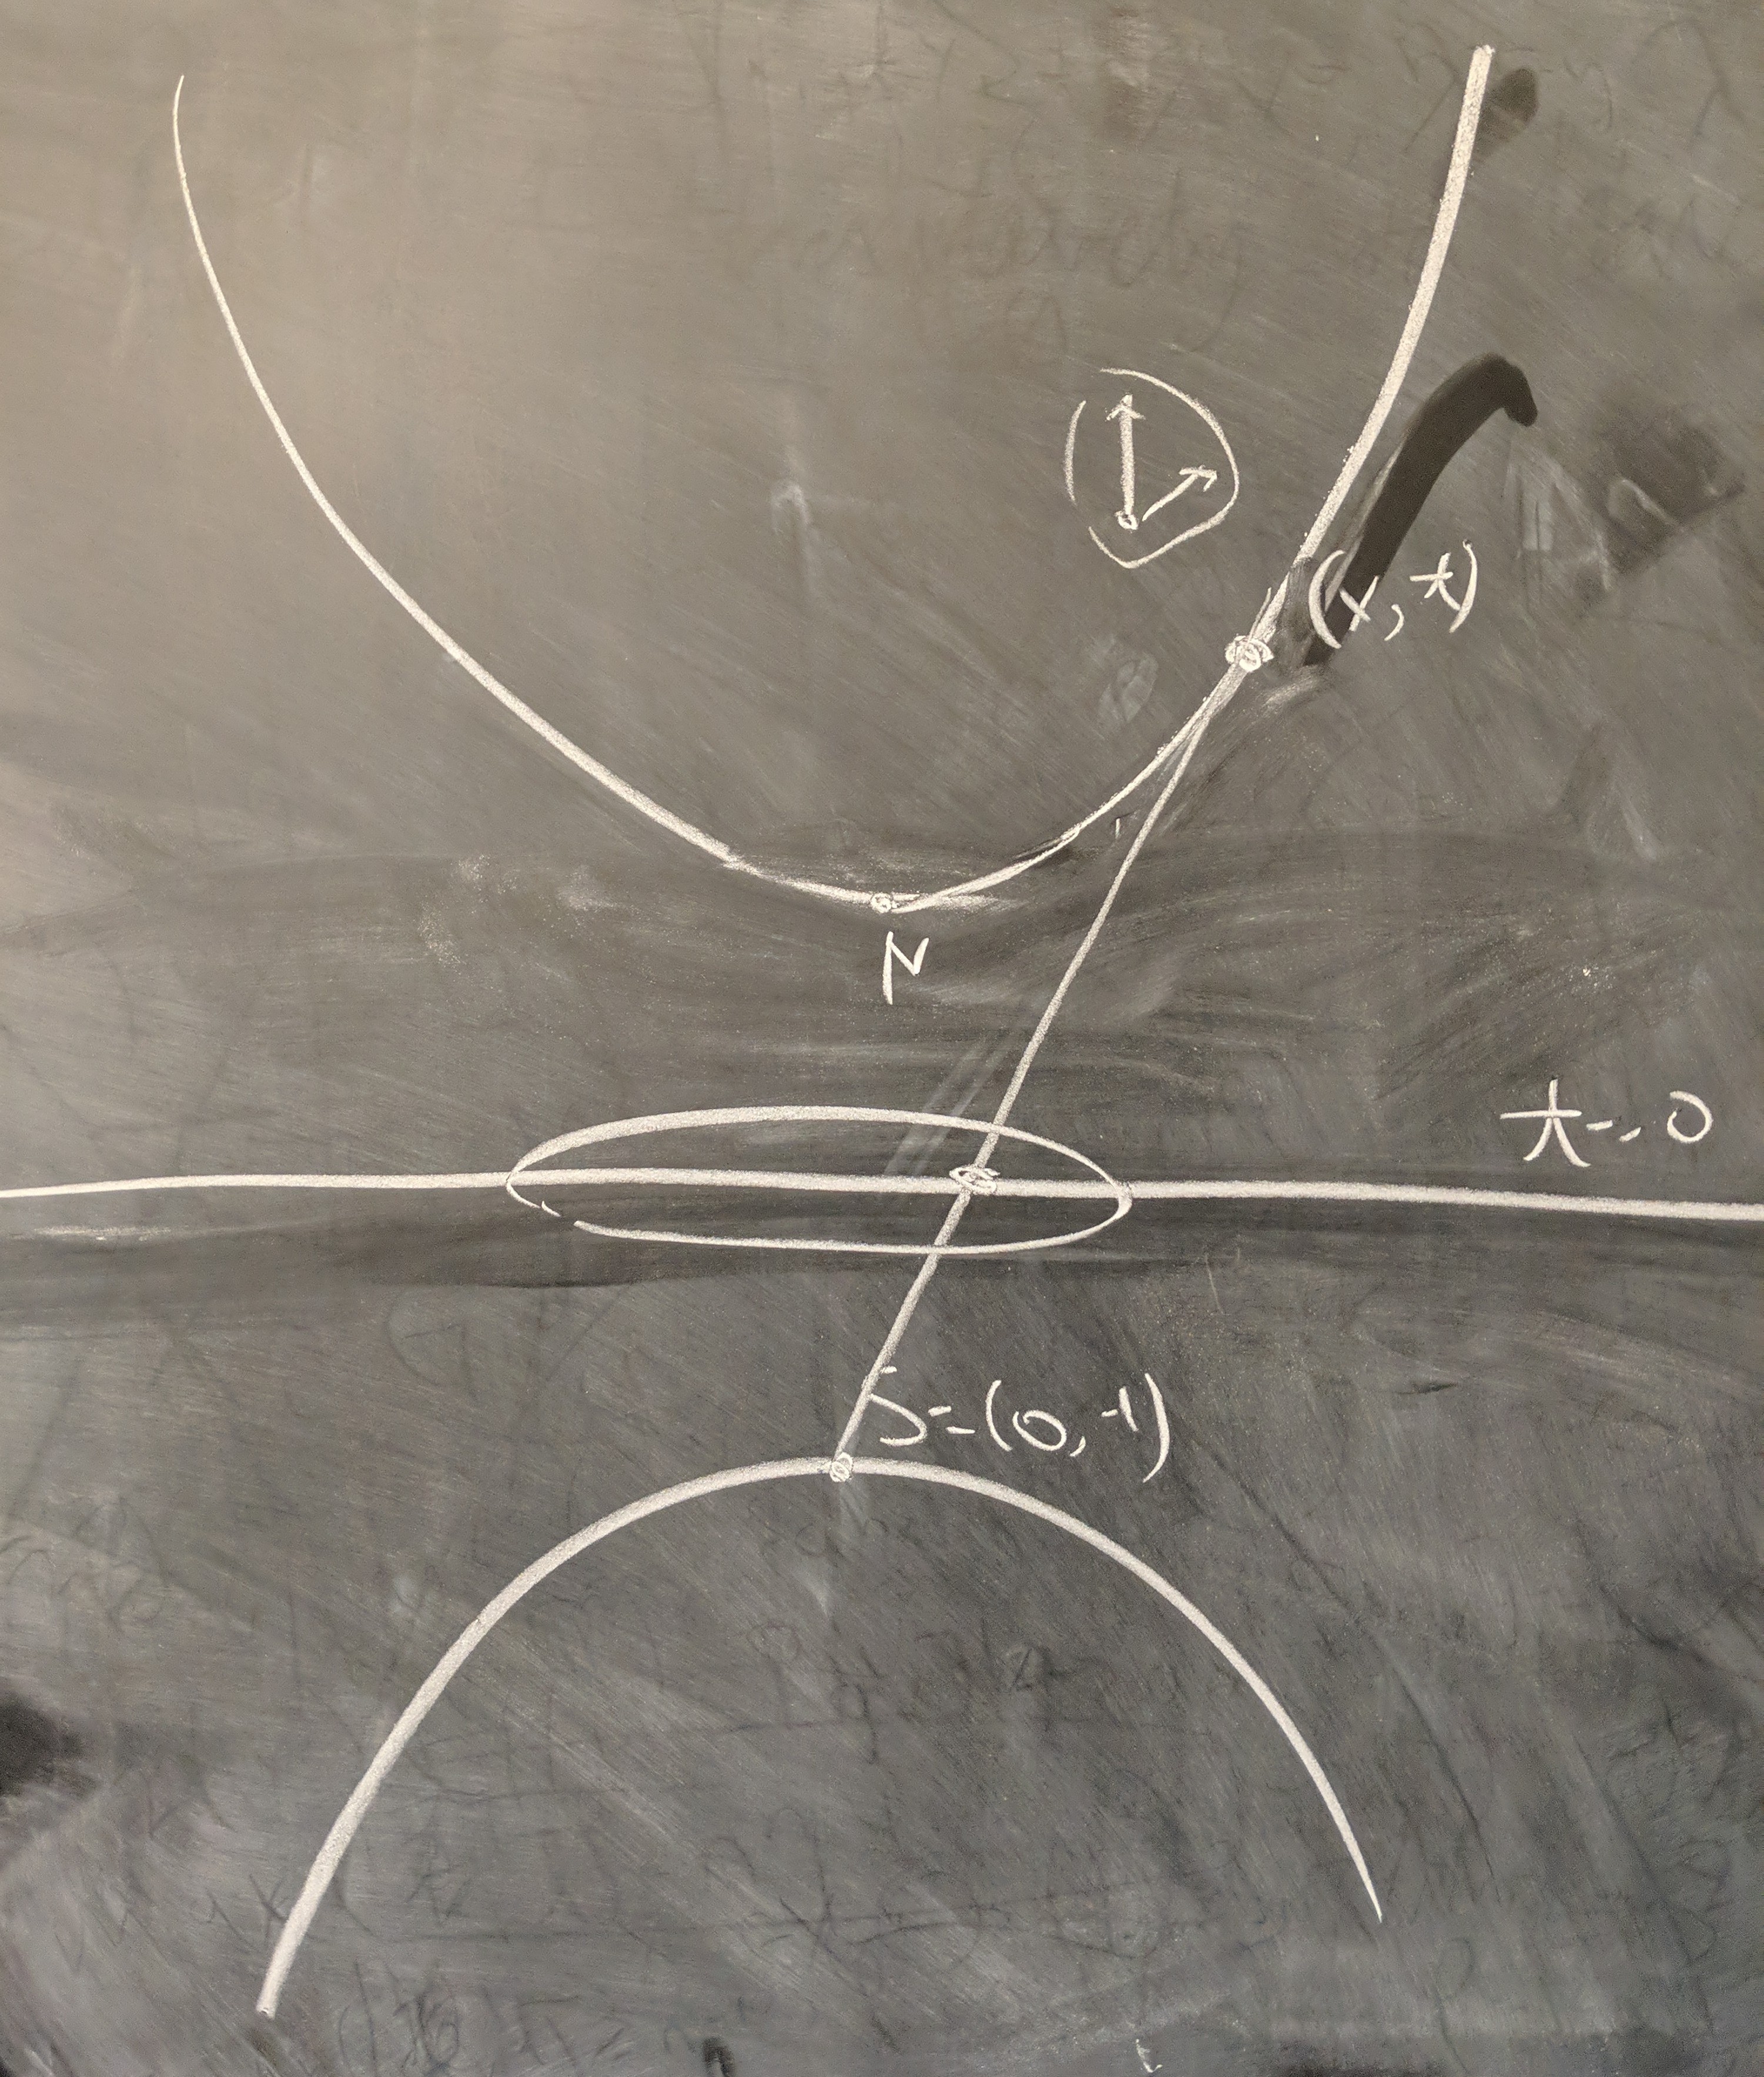 (x, t)
N
t=0
S=(0,-1)